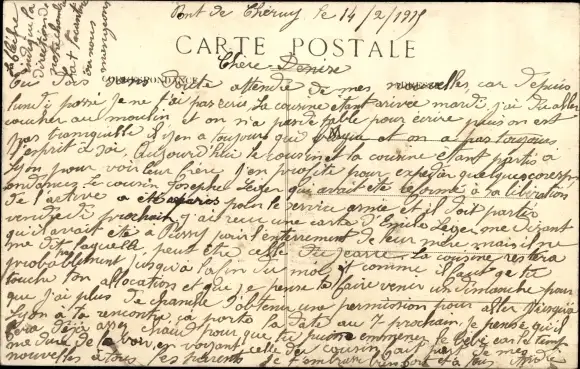 Pont de Chéruy, le 14/2/1915
CARTE POSTALE
Chère Denise
CORRESPONDANCE
Tu dois sans doute attendre de mes nouvelles, car depuis
lundi passé je ne t'ai pas écrit. Le cousine étant arrivée mardi, j'ai dû aller
coucher au moulin et on n'a pas de table pour écrire puis on est
pas tranquille il y en a toujours qui et on a pas toujours
l'esprit à soi. Aujourd'hui le cousin et la cousine étant partis à
Lyon pour voir leur j'en profite pour expédier quelques corresp
ondances. Le cousin Joseph Leger qui avait été réformé à sa libération
de l'active a été pris pour le service armé et il doit partir
vendredi prochain. J'ai reçu une carte d'Emile Leger me disant
qu'il avait été à pour l'enterrement de leur mère mais il ne
me dit laquelle peut être celle La cousine restera
probablement jusqu'à la fin du mois et comme il faut que tu
touche ton allocations et que je pense te faire venir un dimanche pour
que j'ai plus de chance d'obtenir une permission pour aller jusqu'à
Lyon à ta rencontre, ça porte la date au 7 prochain. Je pense qu'il
fera déjà assez chaud pour que tu puisse emmener le bébé car le temps
me dure de la voir, en voyant celle du cousin. fait part de mes
nouvelles à tous les parents je t'embrasse bien fort et à tous André